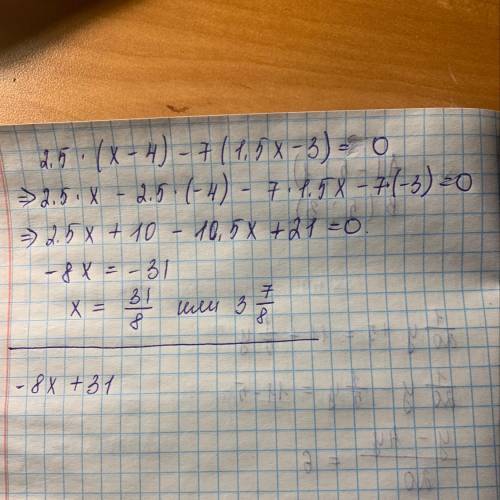 2.5 · (x - 4) - 7 (1,5x - 3) = 0
⇒ 2.5 · x - 2.5 · (-4) - 7 · 1.5x - 7 · (-3) = 0
⇒ 2.5x + 10 - 10,5x + 21 = 0.
-8x = -31
x = 31/8 или 3 7/8
-8x + 31